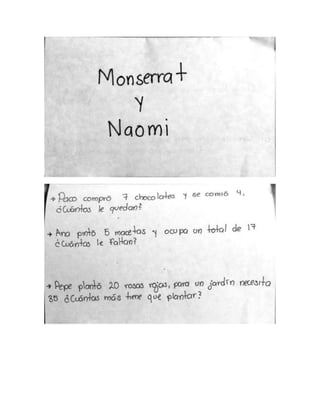 Monserrat
y
Naomi
→ Paco compró 7 chocolates y se comió 4.
¿Cuántos le quedan?
→ Ana pintó 5 macetas y ocupa un total de 17
¿Cuántas le faltan?
→ Pepe plantó 20 rosas rojas, para un jardín necesita
85 ¿Cuántas más tiene que plantar?